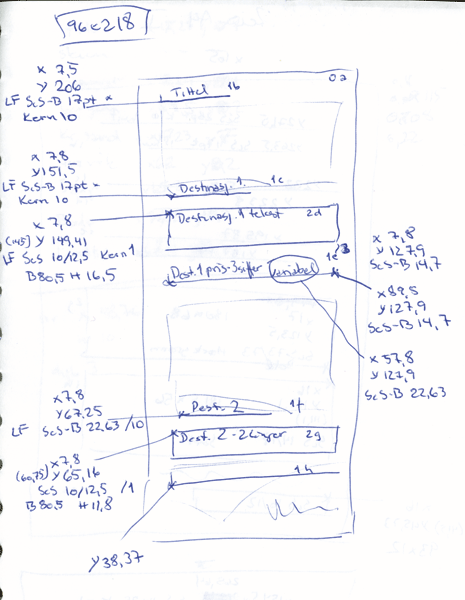 96x218
x 7,5
y 206
LF ScS-B 17pt x
Kern 10
Tittel 1b
0a
x 7,8
y 151,5
LF ScS-B 17pt x
Kern 10
Destinasj. 1. 1c
x 7,8
(145) y 149,41
LF ScS 10/12,5 Kern 1
B 80,5 H 16,5
Destinasj. 1 tekst 2d
1e
Dest. 1 pris-3siffer variabel
x 7,8
y 127,9
ScS-B 14,7
x 89,5
y 127,9
ScS-B 14,7
x 57,8
y 127,9
ScS-B 22,63
x 7,8
y 67,25
LF ScS-B 22,63 /10
Dest. 2 1f
Dest. 2 - 2linjer 2g
x 7,8
(60,75) y 65,16
ScS 10/12,5 /1
B 80,5 H 11,8
1h
y 38,37